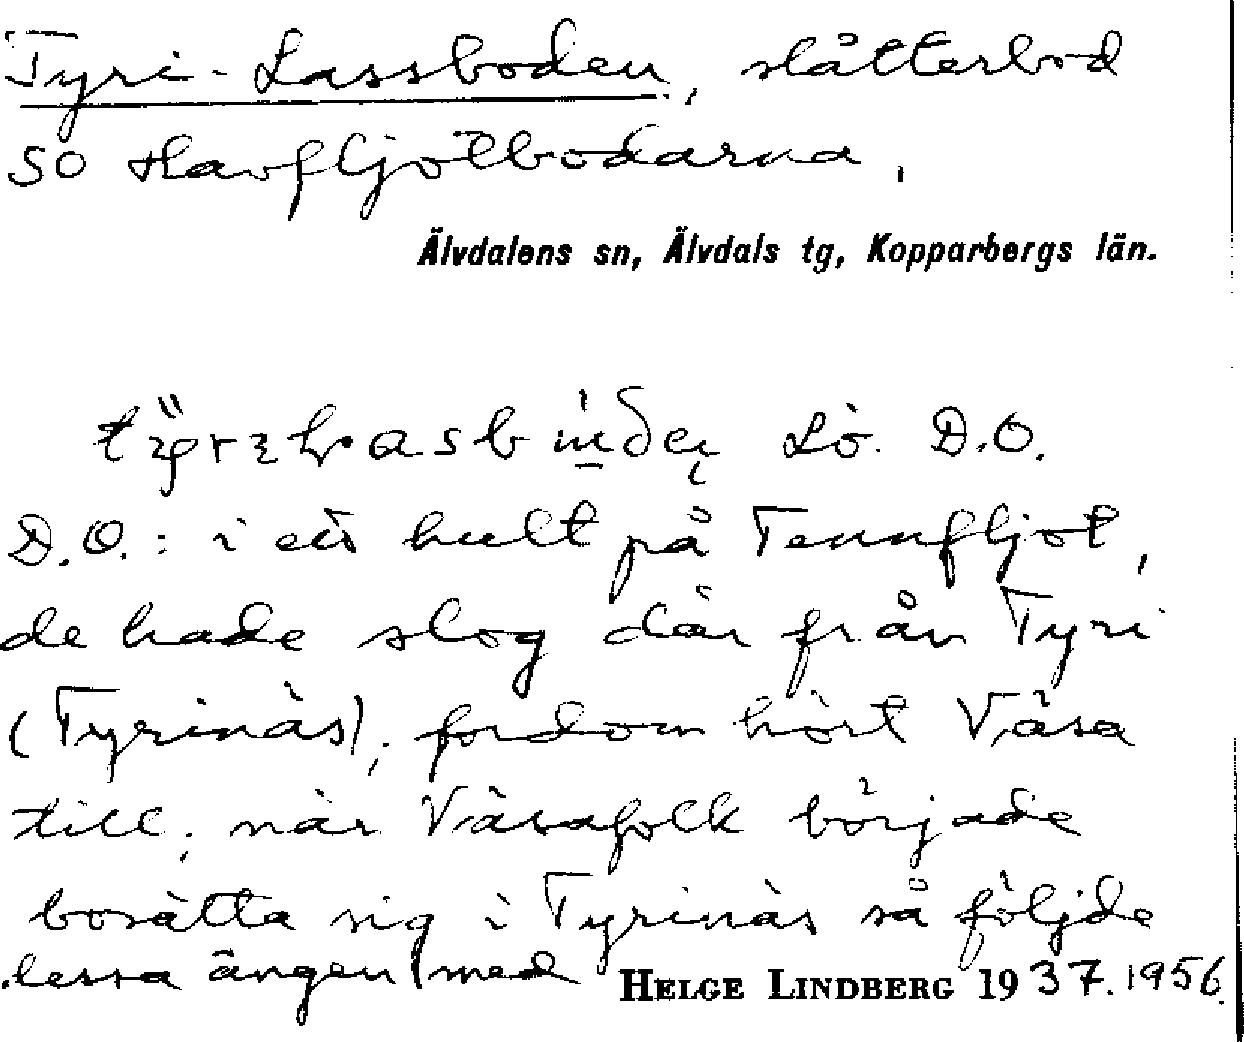 Tyri-Lassboden, slåtterbod
SO Havfljotbodarna,
Älvdalens sn, Älvdals tg, Kopparbergs län.
Lö. D.O.
D.O.: i ett hult på Tennfljot,
de hade slog där från Tyri
(Tyrinäs), fordom hört Väsa
till, när Väsafolk började
bosätta sig i Tyrinäs så följde
lessa ängen med
HELGE LINDBERG 1937. 1956.